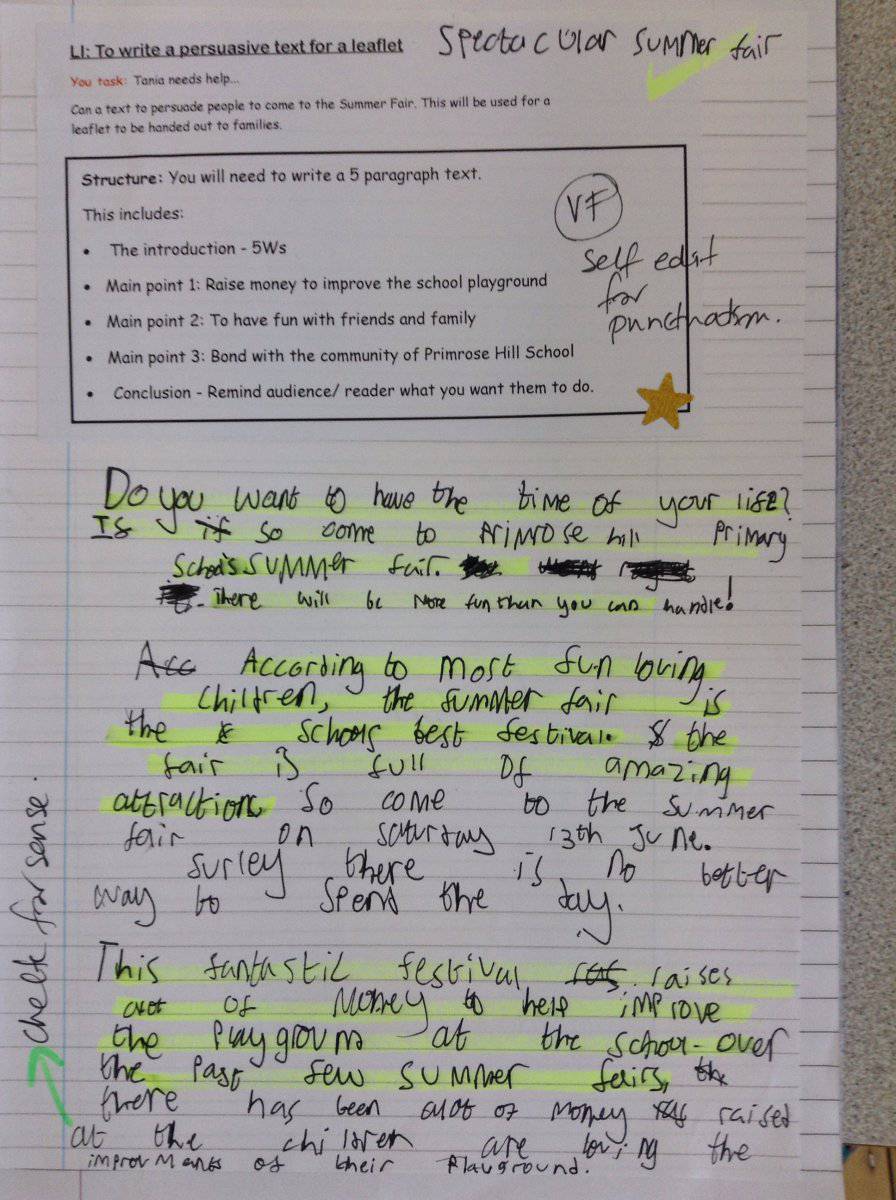 LI: To write a persuasive text for a leaflet
Spectacular summer fair
You task: Tania needs help...
Can a text to persuade people to come to the Summer Fair. This will be used for a
leaflet to be handed out to families.
Structure: You will need to write a 5 paragraph text.
This includes:
• The introduction - 5Ws
• Main point 1: Raise money to improve the school playground
• Main point 2: To have fun with friends and family
• Main point 3: Bond with the community of Primrose Hill School
• Conclusion - Remind audience/ reader what you want them to do.
VF
self edit
for
punctuation.
Do you want to have the time of your life?
If so come to primrose hill primary
school's summer fair.
There will be more fun than you can handle!
According to most fun loving
children, the summer fair is
the schools best festival. the
fair is full of amazing
attractions, so come to the summer
fair on saturday 13th June.
surley there is no better
way to spend the day.
This fantastic festival raises
alot of money to help improve
the playground at the school. over
the past few summer fairs,
there has been alot of money raised
at the children are loving the
improvments of their playground.
check for sense.